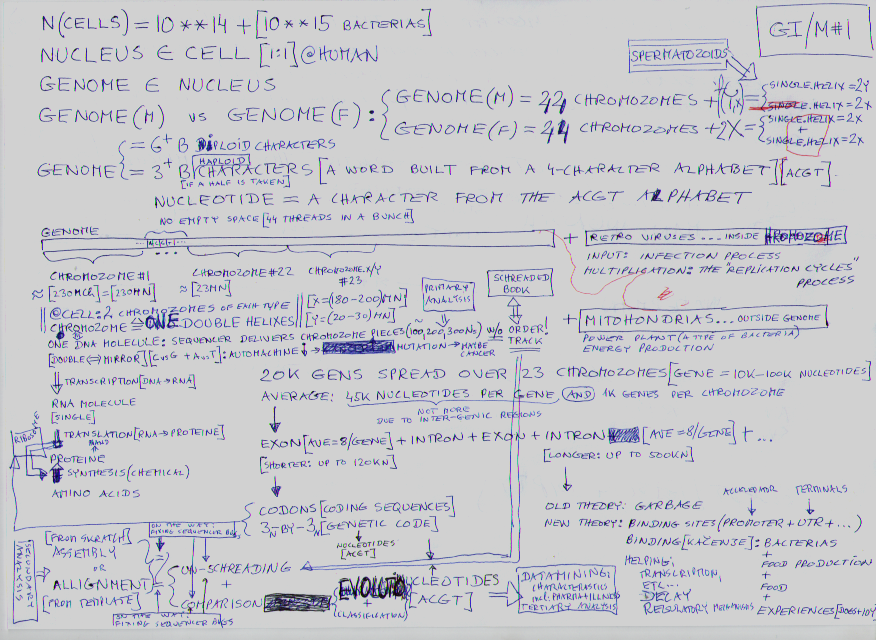 N(CELLS) = 10**14 + [10**15 BACTERIAS]
GI/M#1
NUCLEUS ∈ CELL [1:1]@HUMAN
SPERMATOZOIDS
GENOME ∈ NUCLEUS
GENOME(M) VS GENOME(F):
GENOME(M) = 44 CHROMOZOMES +
SINGLE.HELIX=2Y
SINGLE.HELIX=2X
GENOME(F) = 44 CHROMOZOMES + 2X =
SINGLE.HELIX=2X
+
SINGLE.HELIX=2X
GENOME
= 6+ B DIPLOID CHARACTERS
= 3+ B HAPLOID CHARACTERS [A WORD BUILT FROM A 4-CHARATER ALPHABET] [ACGT]
[IF A HALF IS TAKEN]
NUCLEOTIDE = A CHARACTER FROM THE ACGT ALPHABET
NO EMPTY SPACE [44 THREADS IN A BUNCH]
GENOME
+ RETRO VIRUSES ... INSIDE CHROMOZOME
INPUT: INFECTION PROCESS
MULTIPLICATION: THE "REPLICATION CYCLES" PROCESS
CHROMOZOME#1
≈ [230MCh] = [230MN]
CHROMOZOME#22
≈ [23MN]
CHROMOZOME.X/Y
#23
[X=(180-200)MN]
[Y=(20-30)MN]
PRIMARY ANALYSIS
SCHREADED BOOK
+ MITOHONDRIAS... OUTSIDE GENOME
POWER PLANT (A TYPE OF BACTERIA)
ENERGY PRODUCTION
@CELL: 2 CHROMOZOMES OF EACH TYPE
CHROMOZOME ≅ ONE DOUBLE HELIXES
ONE DNA MOLECULE: SEQUENCER DELIVERS CHROMOZOME PIECES (100,200,300NS) W/O ORDER!
TRACK
[DOUBLE⇔MIRROR] [CvsG + AvsT]: AUTOMACHINE
MUTATION → MAYBE CANCER
TRANSCRIPTION [DNA→RNA]
RNA MOLECULE
[SINGLE]
RIBOZOME
TRANSLATION [RNA→PROTEINE]
PROTEINE
SYNTHESIS (CHEMICAL)
AMINO ACIDS
20K GENS SPREAD OVER 23 CHROMOZOMES [GENE = 10K-100K NUCLEOTIDES]
AVERAGE: 45K NUCLEOTIDES PER GENE AND 1K GENES PER CHROMOZOME
NOT MORE
DUE TO INTER-GENIC REGIONS
EXON [AVE=8/GENE] + INTRON + EXON + INTRON [AVE=8/GENE] + ...
[SHORTER: UP TO 120KN]
[LONGER: UP TO 500KN]
CODONS [CODING SEQUENCES]
3N-BY-3N [GENETIC CODE]
NUCLEOTIDES
[ACGT]
ACCELERATOR TERMINALS
OLD THEORY: GARBAGE
NEW THEORY: BINDING SITES (PROMOTER + UTR + ...)
BINDING [KAČENJE]: BACTERIAS
+
FOOD PRODUCTION
+
FOOD
+
EXPERIENCES
HELPING:
TRANSCRIPTION,
ETC...
DELAY
REGULATORY
SECONDARY ANALYSIS
[FROM SCRATCH]
ASSEMBLY
OR
ALLIGNMENT
[FROM TEMPLATE]
ON THE WAY:
FIXING SEQUENCER BUGS
UN-SCHREADING
+
COMPARISON
(CLASSIFICATION)
NUCLEOTIDES
[ACGT]
ON THE WAY:
FIXING SEQUENCER BUGS
DATAMINING:
CHARACTERISTICS
TERTIARY ANALYSIS